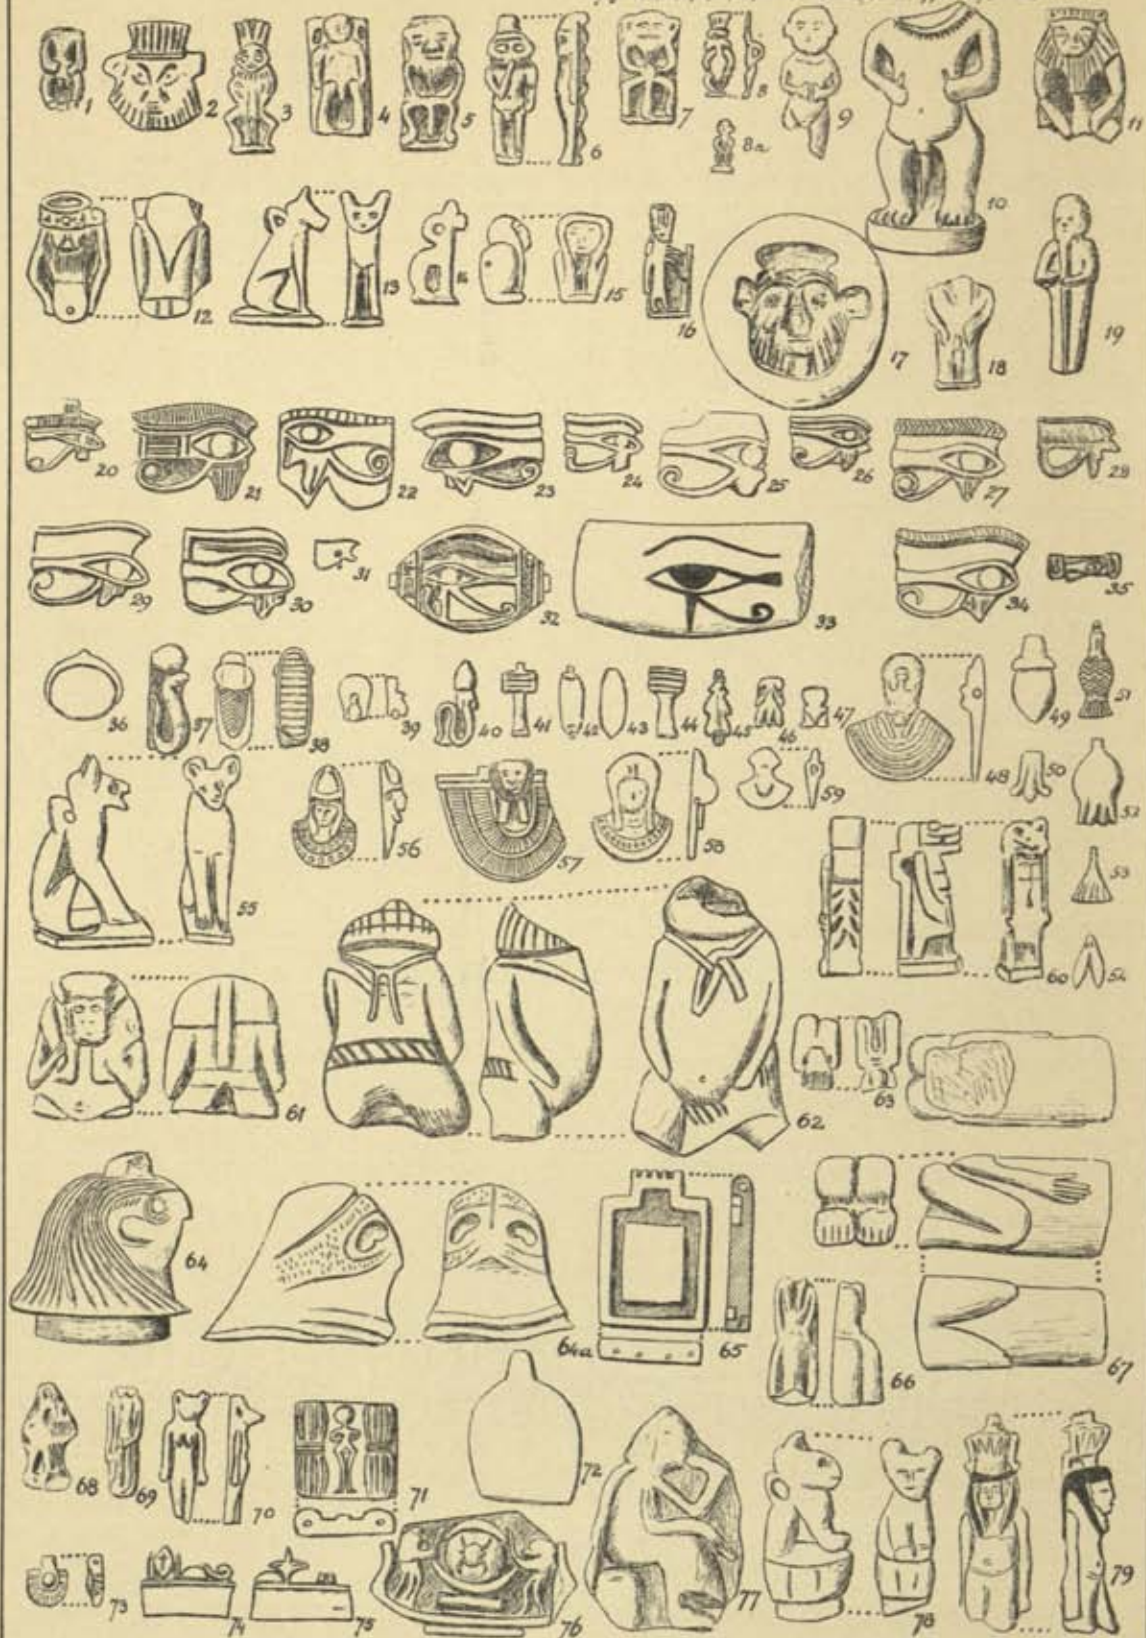 1 2 3 4 5 6 7 8 9 10 11
8a
12 13 14 15 16 17 18 19
20 21 22 23 24 25 26 27 28
29 30 31 32 33 34 35
36 37 38 39 40 41 42 43 44 45 46 47 48 49 51
50 52
55 56 57 58 59 53
60 54
61 62 63
64 64a 65 66 67
68 69 70 71 72
73 74 75 76 77 78 79